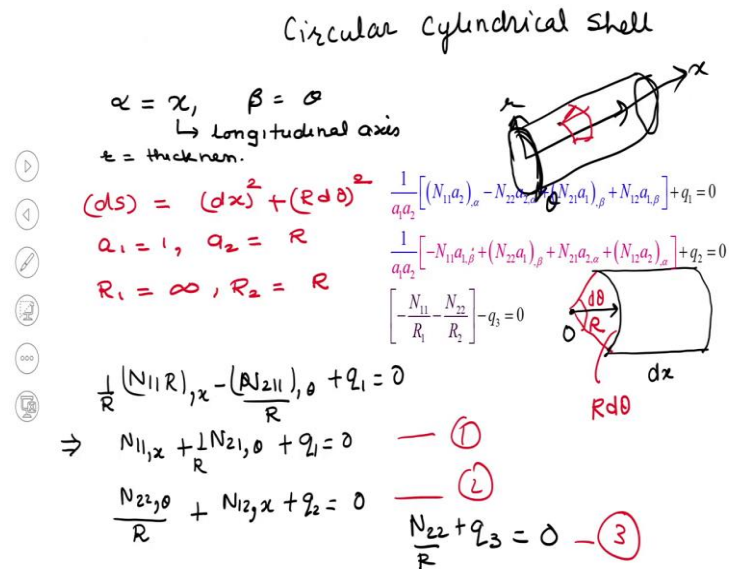 Circular Cylindrical Shell
α = x, β = θ
↳ longitudinal axis
t = thickness.
x
r
θ
(ds) = (dx)² + (Rdθ)²
a₁ = 1, a₂ = R
R₁ = ∞, R₂ = R
1/(a₁a₂) [(N₁₁a₂),α − N₂₂a₂,α + (N₂₁a₁),β + N₁₂a₁,β] + q₁ = 0
1/(a₁a₂) [−N₁₁a₁,β + (N₂₂a₁),β + N₂₁a₂,α + (N₁₂a₂),α] + q₂ = 0
[−N₁₁/R₁ − N₂₂/R₂] − q₃ = 0
dθ
R
O
dx
Rdθ
1/R (N₁₁R),x − (N₂₁1),θ/R + q₁ = 0
⇒ N₁₁,x + 1/R N₂₁,θ + q₁ = 0 — ①
N₂₂,θ/R + N₁₂,x + q₂ = 0 — ②
N₂₂/R + q₃ = 0 — ③